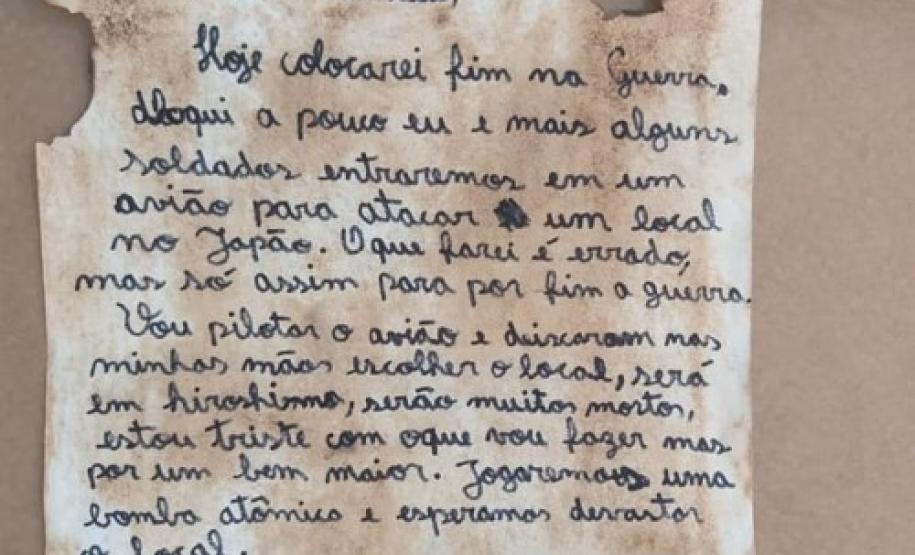 Hoje colocarei fim na Guerra,
daqui a pouco eu e mais alguns
soldados entraremos em um
avião para atacar um local
no Japão. O que farei é errado,
mas só assim para por fim a guerra.
Vou pilotar o avião e deixaram nas
minhas mãos escolher o local, será
em hiroshima, serão muitos mortos,
estou triste com oque vou fazer mas
por um bem maior. Jogaremos uma
bomba atômica e esperamos devastar
o local.